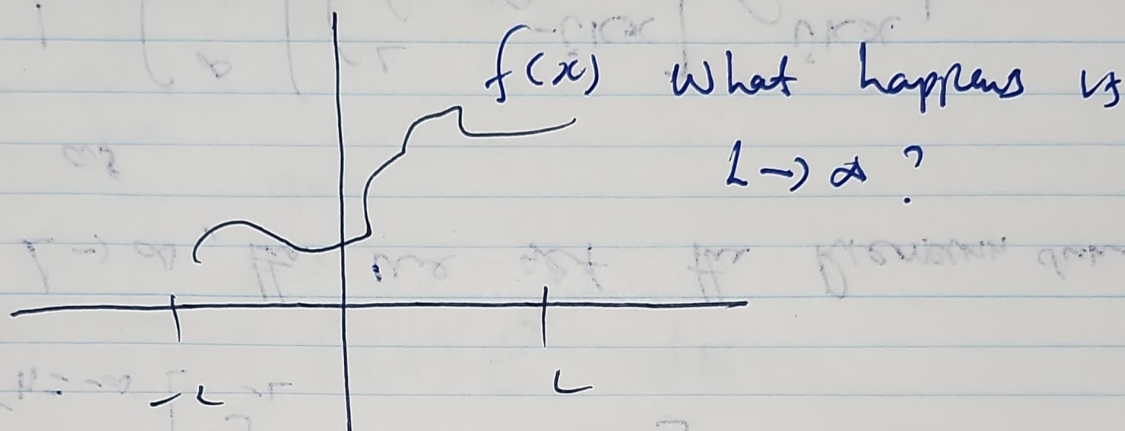 f(x) What happens if
L → ∞ ?
-L L